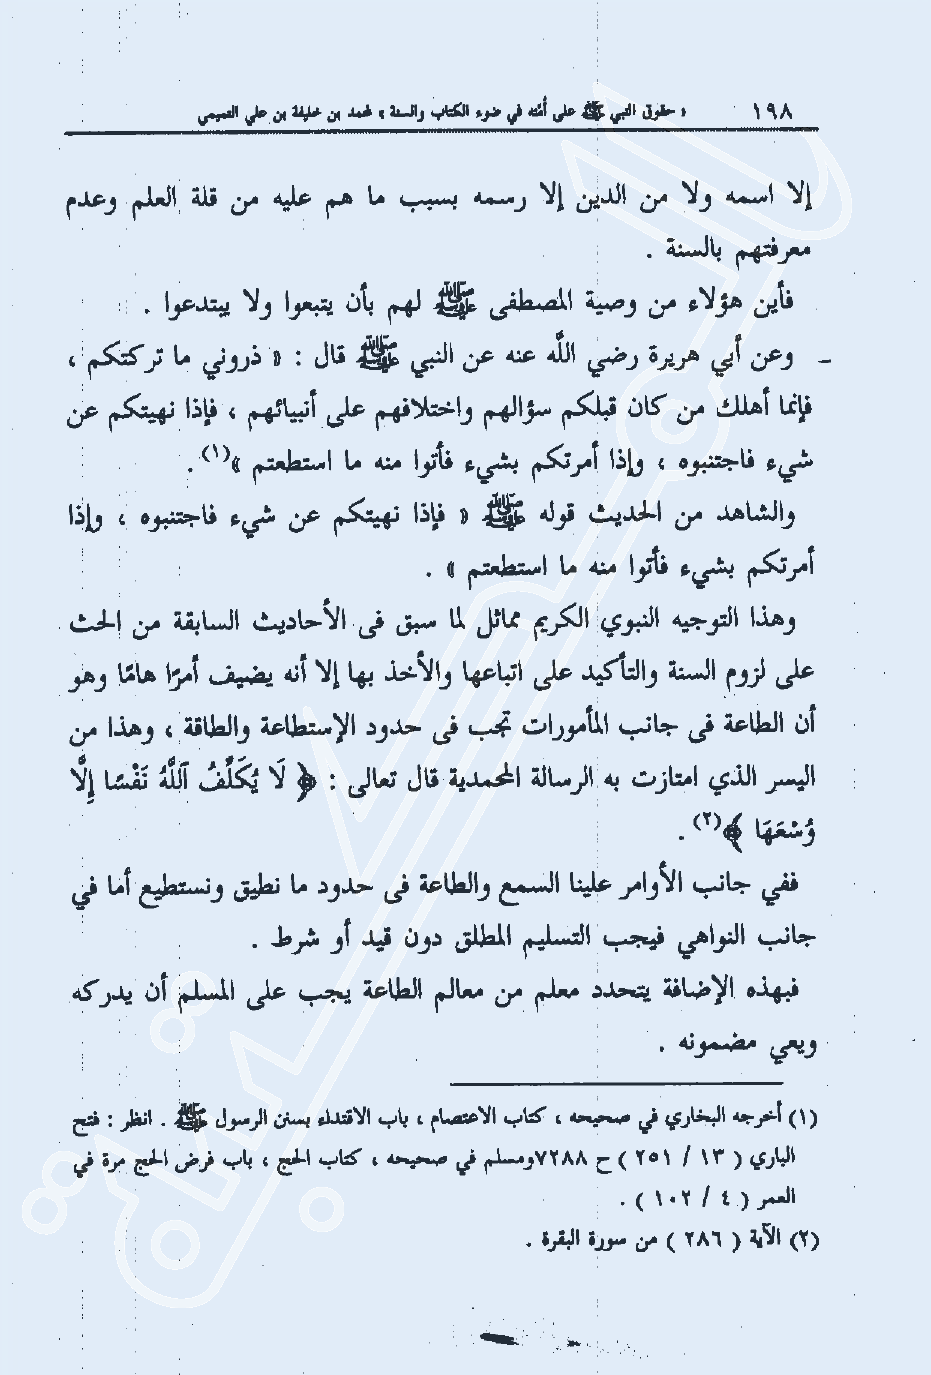 ١٩٨ « حقوق النبي ﷺ على أمته في ضوء الكتاب والسنة » محمد بن خليفة بن علي التميمي
إلا اسمه ولا من الدين إلا رسمه بسبب ما هم عليه من قلة العلم وعدم
معرفتهم بالسنة .
فأين هؤلاء من وصية المصطفى ﷺ لهم بأن يتبعوا ولا يبتدعوا .
ـ وعن أبي هريرة رضي اللَّه عنه عن النبي ﷺ قال : « ذروني ما تركتكم ،
فإنما أهلك من كان قبلكم سؤالهم واختلافهم على أنبيائهم ، فإذا نهيتكم عن
شيء فاجتنبوه ، وإذا أمرتكم بشيء فأتوا منه ما استطعتم »(١) .
والشاهد من الحديث قوله ﷺ « فإذا نهيتكم عن شيء فاجتنبوه ، وإذا
أمرتكم بشيء فأتوا منه ما استطعتم » .
وهذا التوجيه النبوي الكريم مماثل لما سبق فى الأحاديث السابقة من الحث
على لزوم السنة والتأكيد على اتباعها والأخذ بها إلا أنه يضيف أمرًا هامًا وهو
أن الطاعة فى جانب المأمورات تجب فى حدود الإستطاعة والطاقة ، وهذا من
اليسر الذي امتازت به الرسالة المحمدية قال تعالى : ﴿ لَا يُكَلِّفُ ٱللَّهُ نَفْسًا إِلَّا
وُسْعَهَا ﴾(٢) .
ففي جانب الأوامر علينا السمع والطاعة فى حدود ما نطيق ونستطيع أما في
جانب النواهي فيجب التسليم المطلق دون قيد أو شرط .
فبهذه الإضافة يتحدد معلم من معالم الطاعة يجب على المسلم أن يدركه
ويعي مضمونه .
(١) أخرجه البخاري في صحيحه ، كتاب الاعتصام ، باب الاقتداء بسنن الرسول ﷺ . انظر : فتح
الباري ( ١٣ / ٢٥١ ) ح ٧٢٨٨ومسلم في صحيحه ، كتاب الحج ، باب فرض الحج مرة في
العمر ( ٤ / ١٠٢ ) .
(٢) الآية ( ٢٨٦ ) من سورة البقرة .